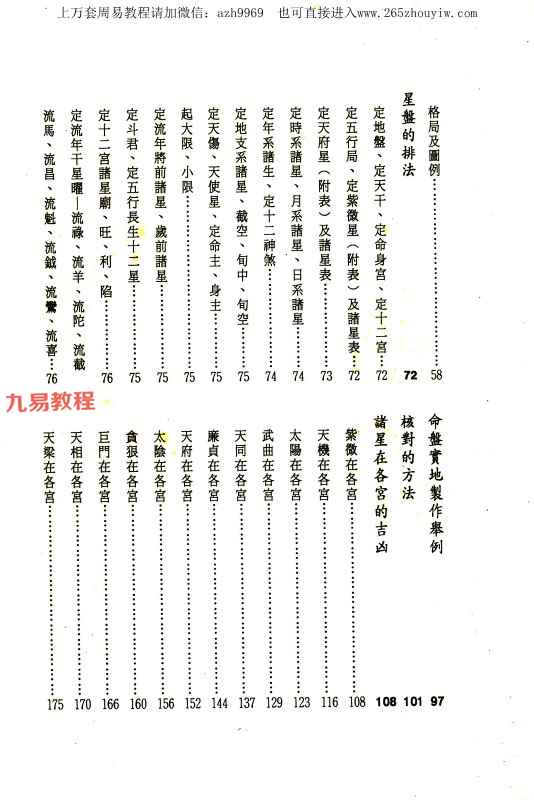 上万套周易教程请加微信：azh9969 也可直接进入www.265zhouyiw.com
格局及圖例…………58
星盤的排法 72
定地盤、定天干、定命身宮、定十二宮…72
定五行局、定紫微星（附表）及諸星表…72
定天府星（附表）及諸星表…………73
定時系諸星、月系諸星、日系諸星………74
定年系諸生、定十二神煞…………74
定地支系諸星、截空、旬中、旬空……75
定天傷、天使星、定命主、身主………75
起大限、小限…………75
定流年將前諸星、歲前諸星…………75
定斗君、定五行長生十二星…………75
定十二宮諸星廟、旺、利、陷…………76
定流年干星曜—流祿、流羊、流陀、流截
流馬、流昌、流魁、流鉞、流鸞、流喜…76
九易教程
命盤實地製作舉例 97
核對的方法 101
諸星在各宮的吉凶 108
紫微在各宮…………108
天機在各宮…………116
太陽在各宮…………123
武曲在各宮…………129
天同在各宮…………137
廉貞在各宮…………144
天府在各宮…………152
太陰在各宮…………156
貪狠在各宮…………160
巨門在各宮…………166
天相在各宮…………170
天梁在各宮…………175